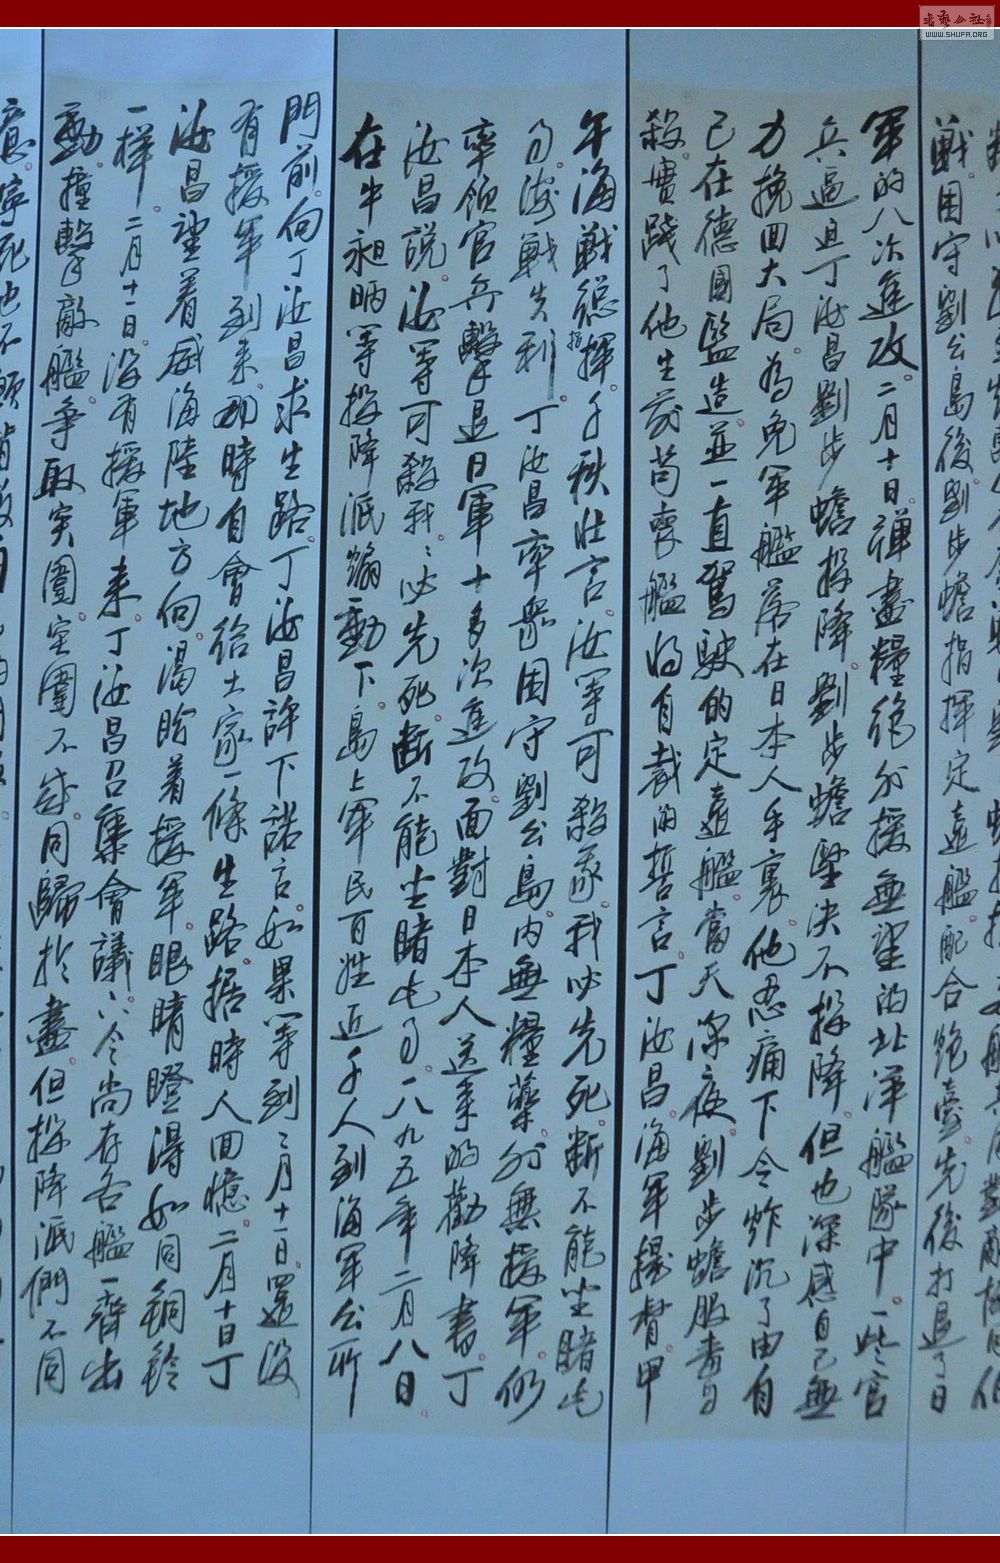 戰困守劉公島後劉步蟾指揮定遠艦配合炮臺先後打退了日
軍的八次進攻二月十日彈盡糧絕外援無望的北洋艦隊中一些官
兵逼迫丁汝昌劉步蟾投降劉步蟾堅決不投降但也深感自己無
力挽回大局為免軍艦落在日本人手裏他忍痛下令炸沉了由自
己在德國監造並一直駕駛的定遠艦當天深夜劉步蟾服毒自
殺實踐了他生前苟喪艦將自裁的誓言丁汝昌海軍提督甲
午海戰總指揮千秋壯言汝等可殺我我必先死斷不能坐睹此
事海戰失利丁汝昌率眾困守劉公島內無糧藥外無援軍仍
率領官兵擊退日軍十多次進攻面對日本人送來的勸降書丁
汝昌說汝等可殺我我必先死斷不能坐睹此事一八九五年二月八日
在牛昶昞等投降派煽動下島上軍民百姓近千人到海軍公所
門前向丁汝昌求生路丁汝昌許下諾言如果等到二月十一日還沒
有援軍到來那時自會給大家一條生路据時人回憶二月十日丁
汝昌望着威海陸地方向渴盼着援軍眼睛瞪得如同銅鈴
一樣二月十一日沒有援軍來丁汝昌召集會議下令尚存各艦一齊出
動撞擊敵艦爭取突圍突圍不成同歸於盡但投降派們不同
意寧死也不
書藝公社
WWW.SHUFA.ORG